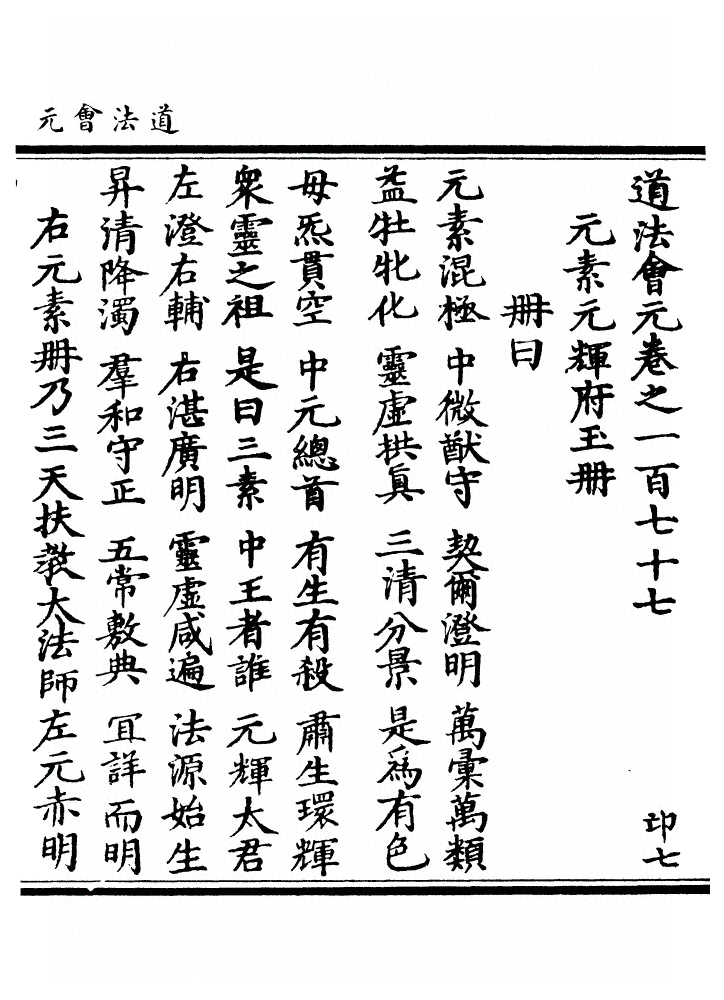 道法會元
道法會元卷之一百七十七 印七
元素元輝府玉冊
冊曰
元素混極 中微猷守 契爾澄明 萬彙萬類
益牡牝化 靈虛拱真 三清分景 是為有色
毋炁貫空 中元總首 有生有殺 肅生環輝
眾靈之祖 是曰三素 中王者誰 元輝太君
左澄右輔 右湛廣明 靈虛咸遍 法源始生
昇清降濁 羣和守正 五常敷典 冝詳而明
右元素冊乃三天扶教大法師左元赤明